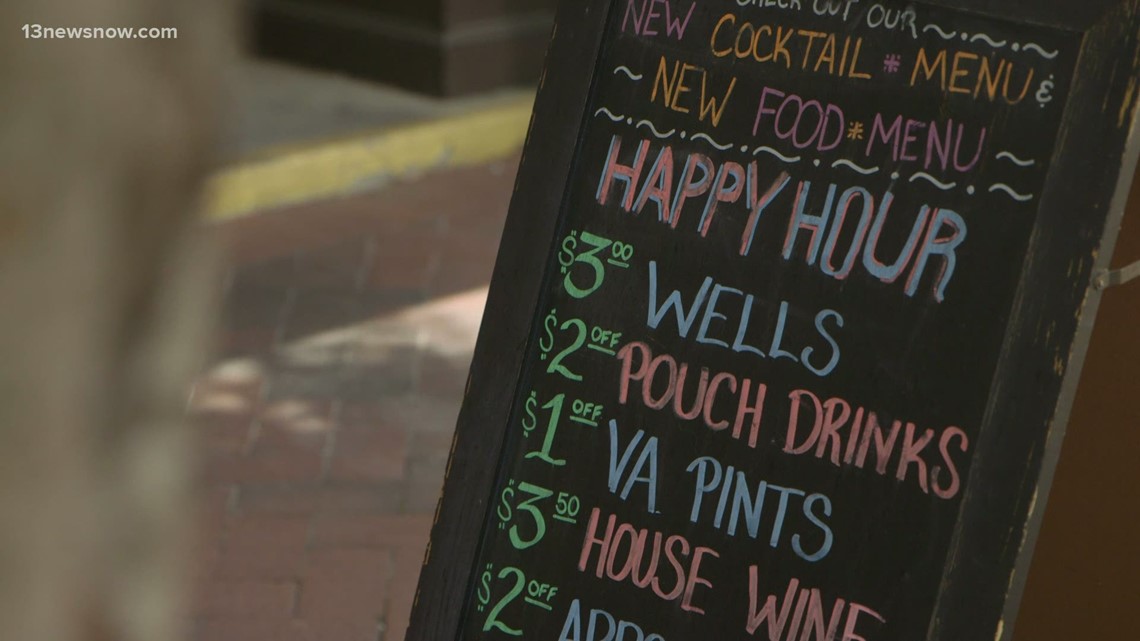 13newsnow.com
CHECK OUT OUR
NEW COCKTAIL * MENU &
NEW FOOD * MENU
HAPPY HOUR
$3.00 WELLS
$2 OFF POUCH DRINKS
$1 OFF VA PINTS
$3.50 HOUSE WINE
$2 OFF